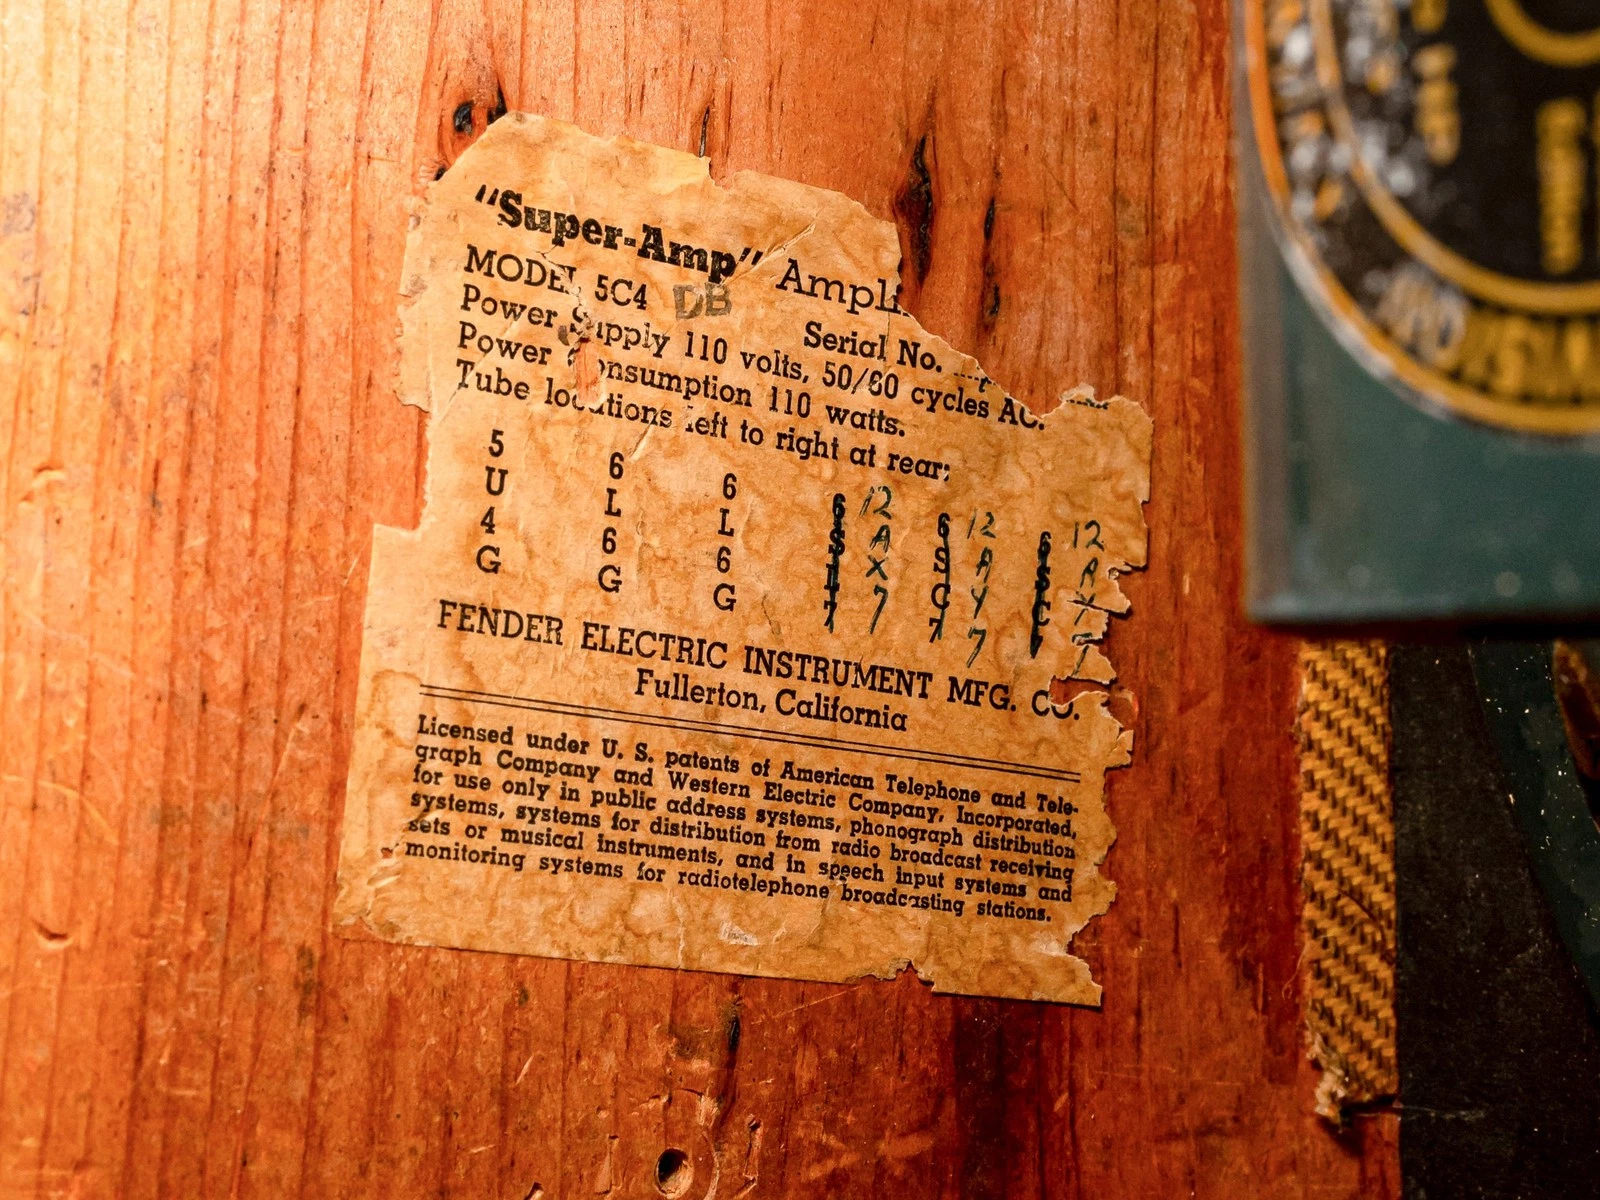 "Super-Amp" Ampli
MODEL 5C4 DB
Serial No.
Power Supply 110 volts, 50/60 cycles AC.
Power Consumption 110 watts.
Tube locations left to right at rear:
5U4G 6L6G 6L6G 6SL7 12AX7 6SC7 12AY7 6SC7 12AY7
FENDER ELECTRIC INSTRUMENT MFG. CO.
Fullerton, California
Licensed under U. S. patents of American Telephone and Tele-
graph Company and Western Electric Company, Incorporated,
for use only in public address systems, phonograph distribution
systems, systems for distribution from radio broadcast receiving
sets or musical instruments, and in speech input systems and
monitoring systems for radiotelephone broadcasting stations.